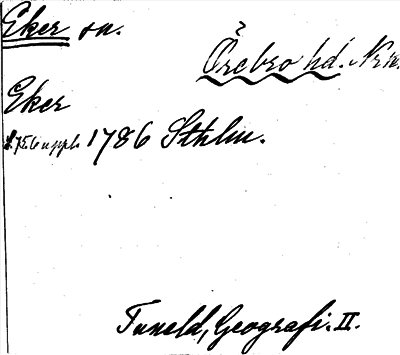 Eker sn.
Örebro hd. Nrk.
Eker
1786 Sthlm.
Tuneld, Geografi. II.